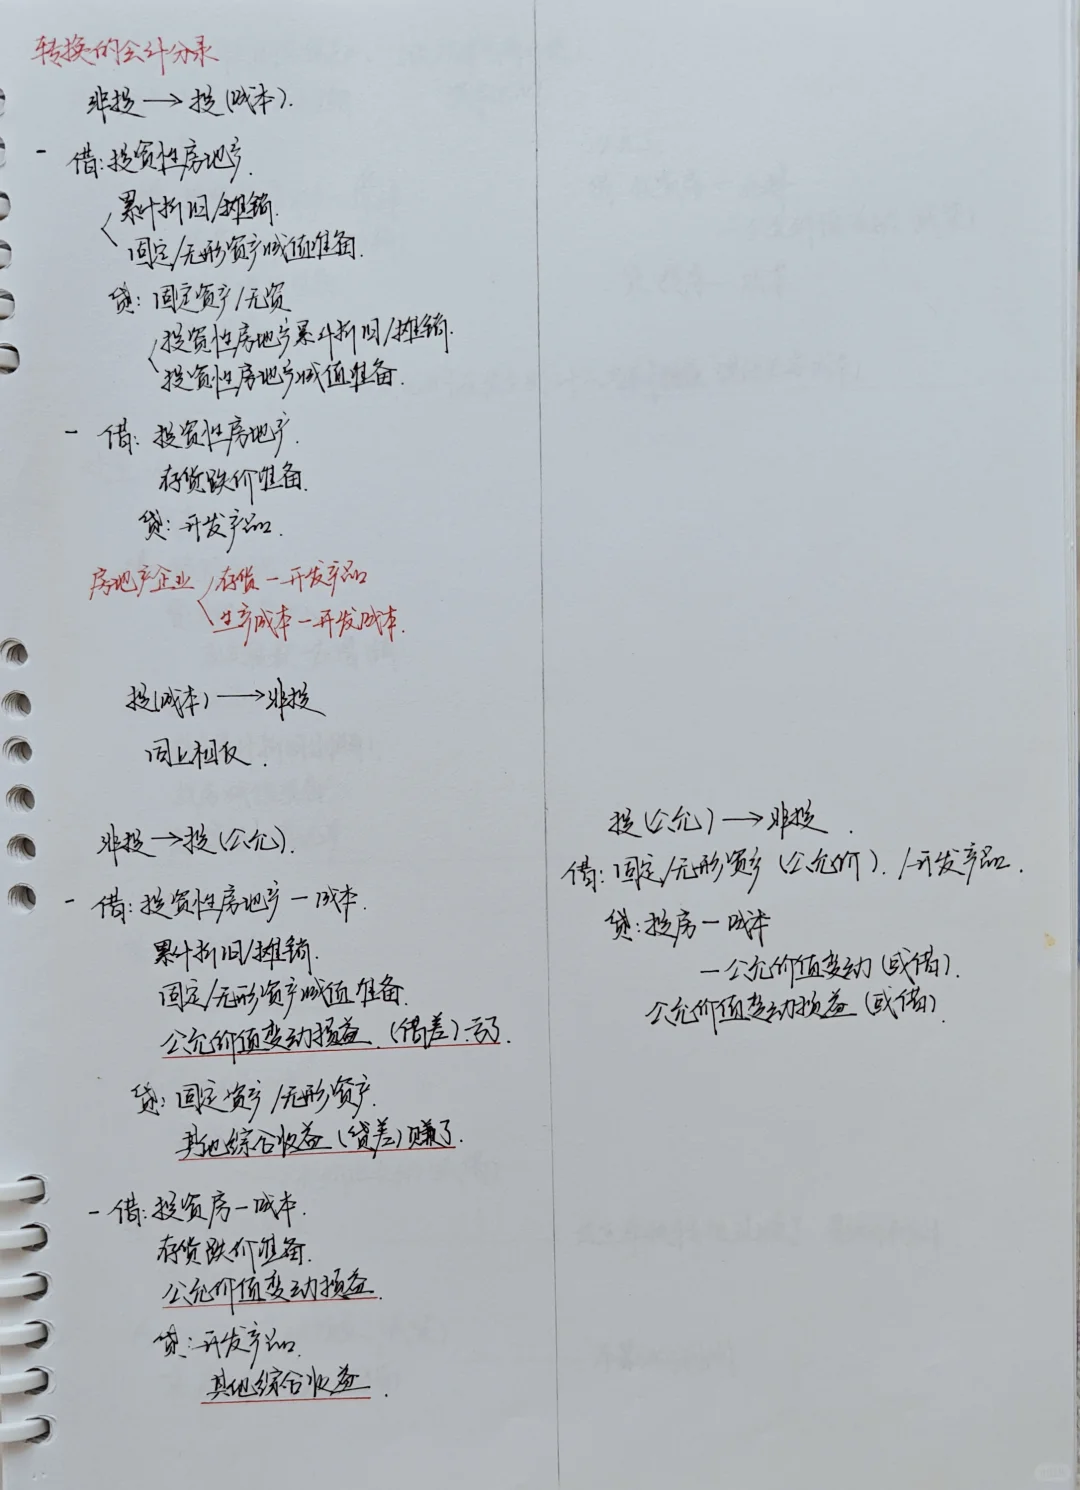 转换的会计分录
非投→投(成本).
- 借:投资性房地产.
累计折旧/摊销.
固定/无形资产减值准备.
贷:固定资产/无资
投资性房地产累计折旧/摊销.
投资性房地产减值准备.
- 借:投资性房地产.
存货跌价准备.
贷:开发产品.
房地产企业 存货-开发产品
生产成本-开发成本.
投(成本)→非投
同上相反.
非投→投(公允).
- 借:投资性房地产-成本.
累计折旧/摊销.
固定/无形资产减值准备.
公允价值变动损益.(借差).亏了.
贷:固定资产/无形资产.
其他综合收益(贷差)赚了.
- 借:投资房-成本.
存货跌价准备.
公允价值变动损益.
贷:开发产品.
其他综合收益.
投(公允)→非投.
借:固定/无形资产(公允价)./开发产品.
贷:投房-成本
-公允价值变动(或借).
公允价值变动损益(或借).